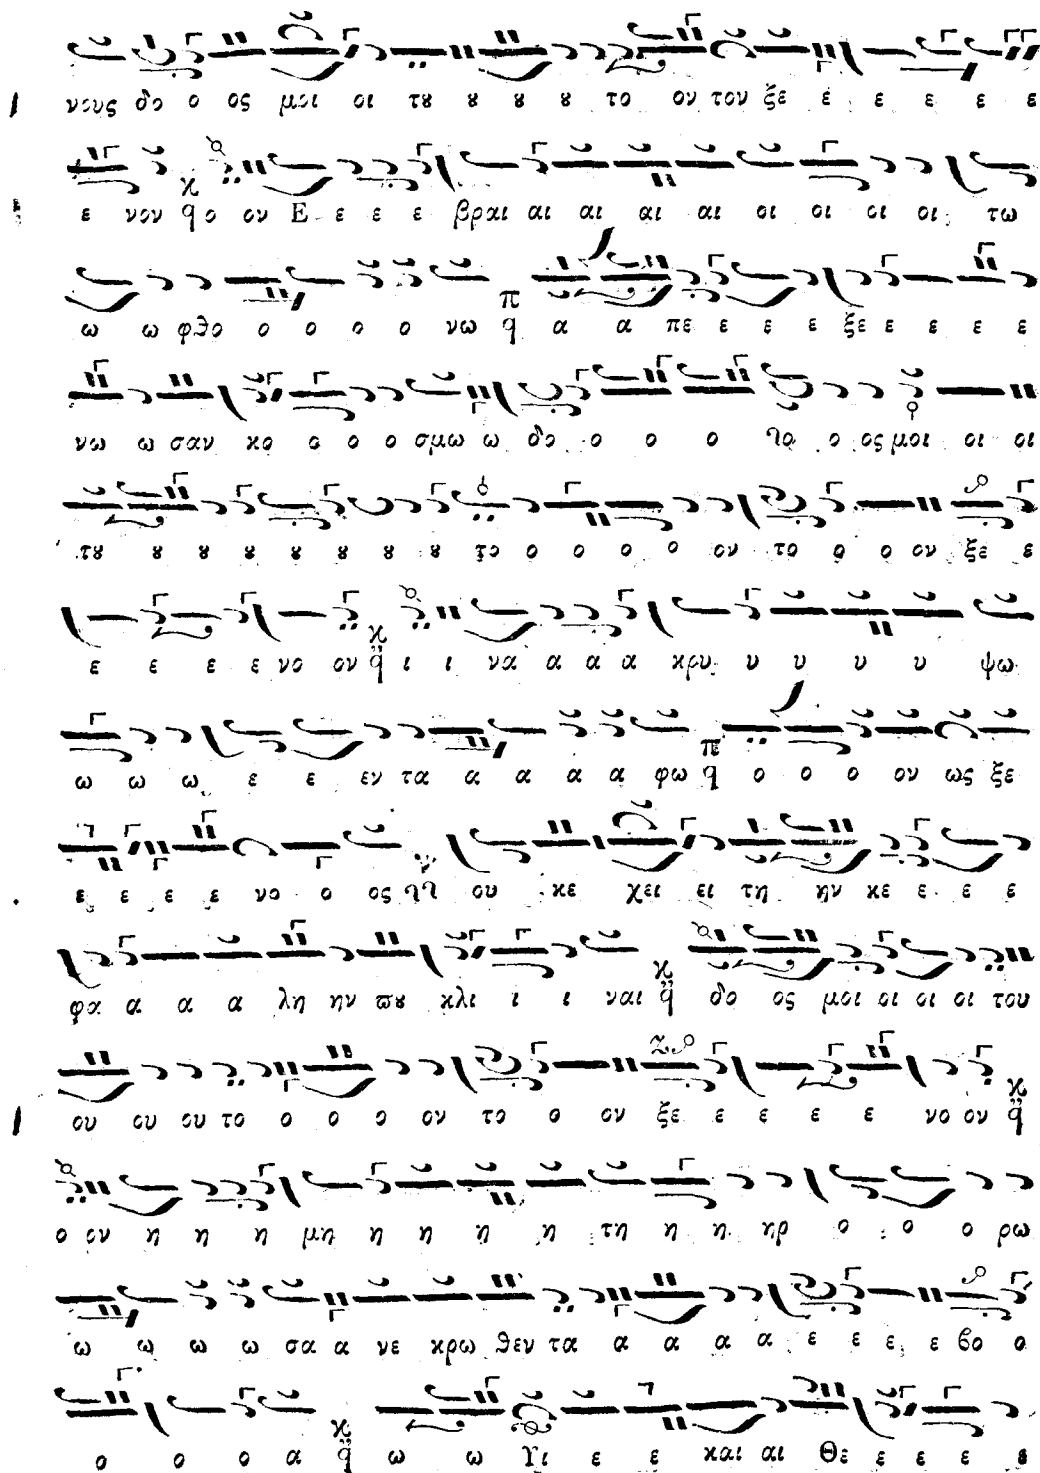 νους δο ο ος μοι οι τȣ ȣ ȣ ȣ το ον τον ξε ε ε ε ε ε
ε νον ο ον Ε ε ε ε βραι αι αι αι αι οι οι οι οι τω
ω ω φϑο ο ο ο ο νω α α πε ε ε ε ξε ε ε ε ε
νω ω σαν κο ο ο ο σμω ω δο ο ο ο το ο ος μοι οι οι
τȣ ȣ ȣ ȣ ȣ ȣ ȣ ȣ το ο ο ο ο ον το ο ο ον ξε ε
ε ε ε ε νο ον ι ι να α α α κρυ υ υ υ υ ψω
ω ω ω ε ε εν τα α α α α φω ο ο ο ον ως ξε
ε ε ε ε νο ο ος ου κε χει ει τη ην κε ε ε ε
φα α α α λη ην πȣ κλι ι ι ναι δο ος μοι οι οι οι του
ου ου ου το ο ο ο ον το ο ον ξε ε ε ε ε νο ον
ο ον η η η μη η η η η τη η η ηρ ο ο ο ρω
ω ω ω ω σα α νε κρω ϑεν τα α α α α ε ε ε ε βο ο
ο ο ο α ω ω Υι ε ε και αι Θε ε ε ε ε